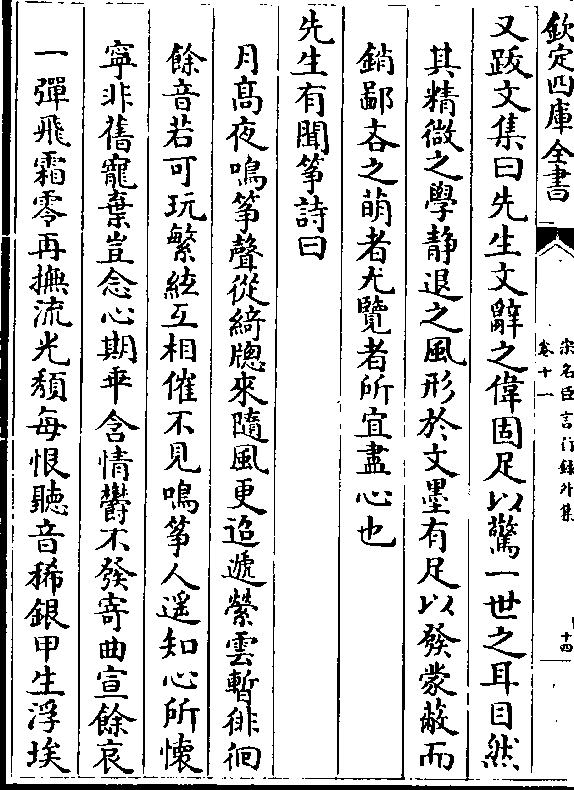 欽定四庫全書
宋名臣言行録外集
卷十一
十四
又跋文集曰先生文辭之偉固足以驚一世之耳目然
其精微之學静退之風形於文墨有足以發蒙蔽而
銷鄙吝之萌者尤覽者所宜盡心也
先生有聞箏詩曰
月髙夜鳴箏聲從綺牕來隨風更迢遞縈雲暫徘徊
餘音若可玩繁絃互相催不見鳴箏人遥知心所懐
寧非舊寵棄豈念心期乖含情鬱不發寄曲宣餘哀
一彈飛霜零再撫流光頽每恨聽音稀銀甲生浮埃